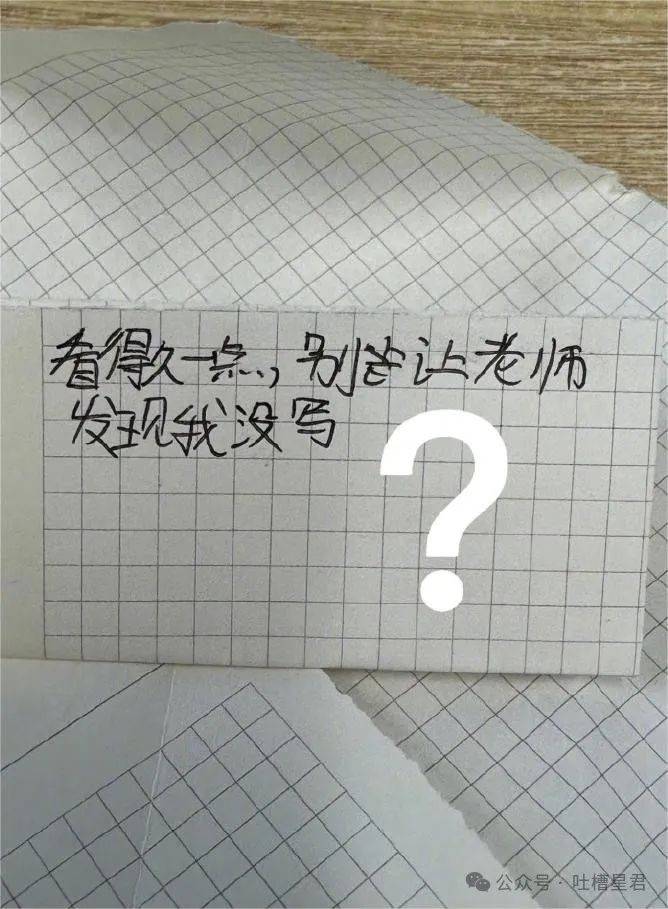 看得久一点，别让老师
发现我没写
?
公众号·吐槽星君